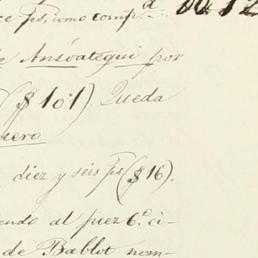 ce ps, como comp.
de Ansoategui por
($101) Queda
nero
diez y seis ps ($16).
endo al juez 6.º ci-
de Bablot nom-